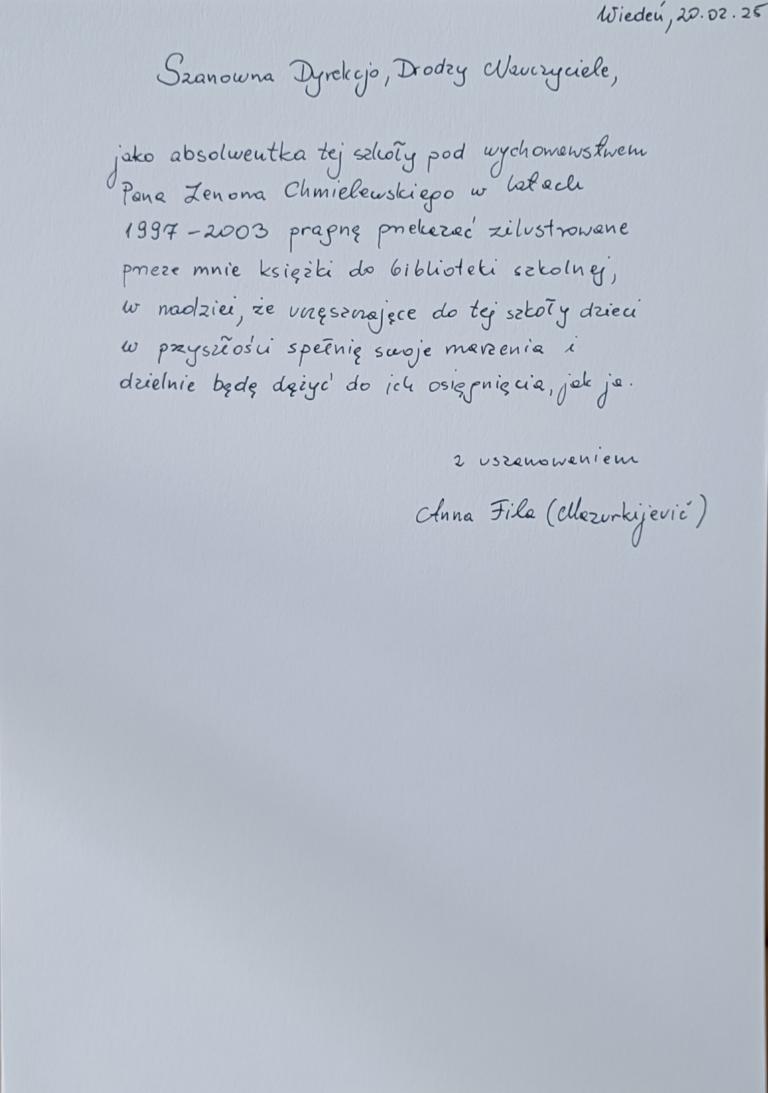 Wiedeń, 20.02.25
Szanowna Dyrekcjo, Drodzy Nauczyciele,
jako absolwentka tej szkoły pod wychowawstwem
Pana Zenona Chmielewskiego w latach
1997-2003 pragnę przekazać zilustrowane
przeze mnie książki do biblioteki szkolnej,
w nadziei, że uczęszczające do tej szkoły dzieci
w przyszłości spełnią swoje marzenia i
dzielnie będą dążyć do ich osiągnięcia, jak ja.
z uszanowaniem
Anna Fila (Mazurkijević)